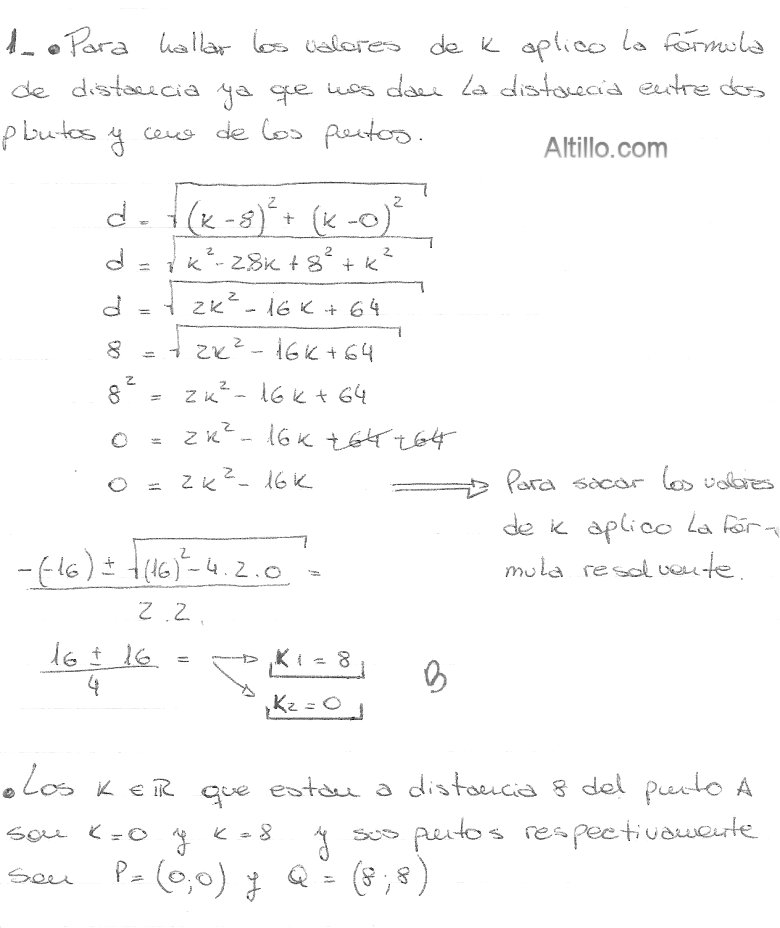 1_ • Para hallar los valores de k aplico la fórmula
de distancia ya que nos dan la distancia entre dos
puntos y uno de los puntos.
Altillo.com
d = √(k-8)² + (k-0)²
d = √k² - 28k + 8² + k²
d = √2k² - 16k + 64
8 = √2k² - 16k + 64
8² = 2k² - 16k + 64
0 = 2k² - 16k +64 +64
0 = 2k² - 16k ⟹ Para sacar los valores
de k aplico la fór-
mula resolvente.
-(-16) ± √(16)² - 4.2.0 =
2.2.
16 ± 16 = → K1 = 8
4 ↘ K2 = 0
• Los K ∈ ℝ que estan a distancia 8 del punto A
son k=0 y k=8 y sus puntos respectivamente
son P=(0;0) y Q=(8;8)